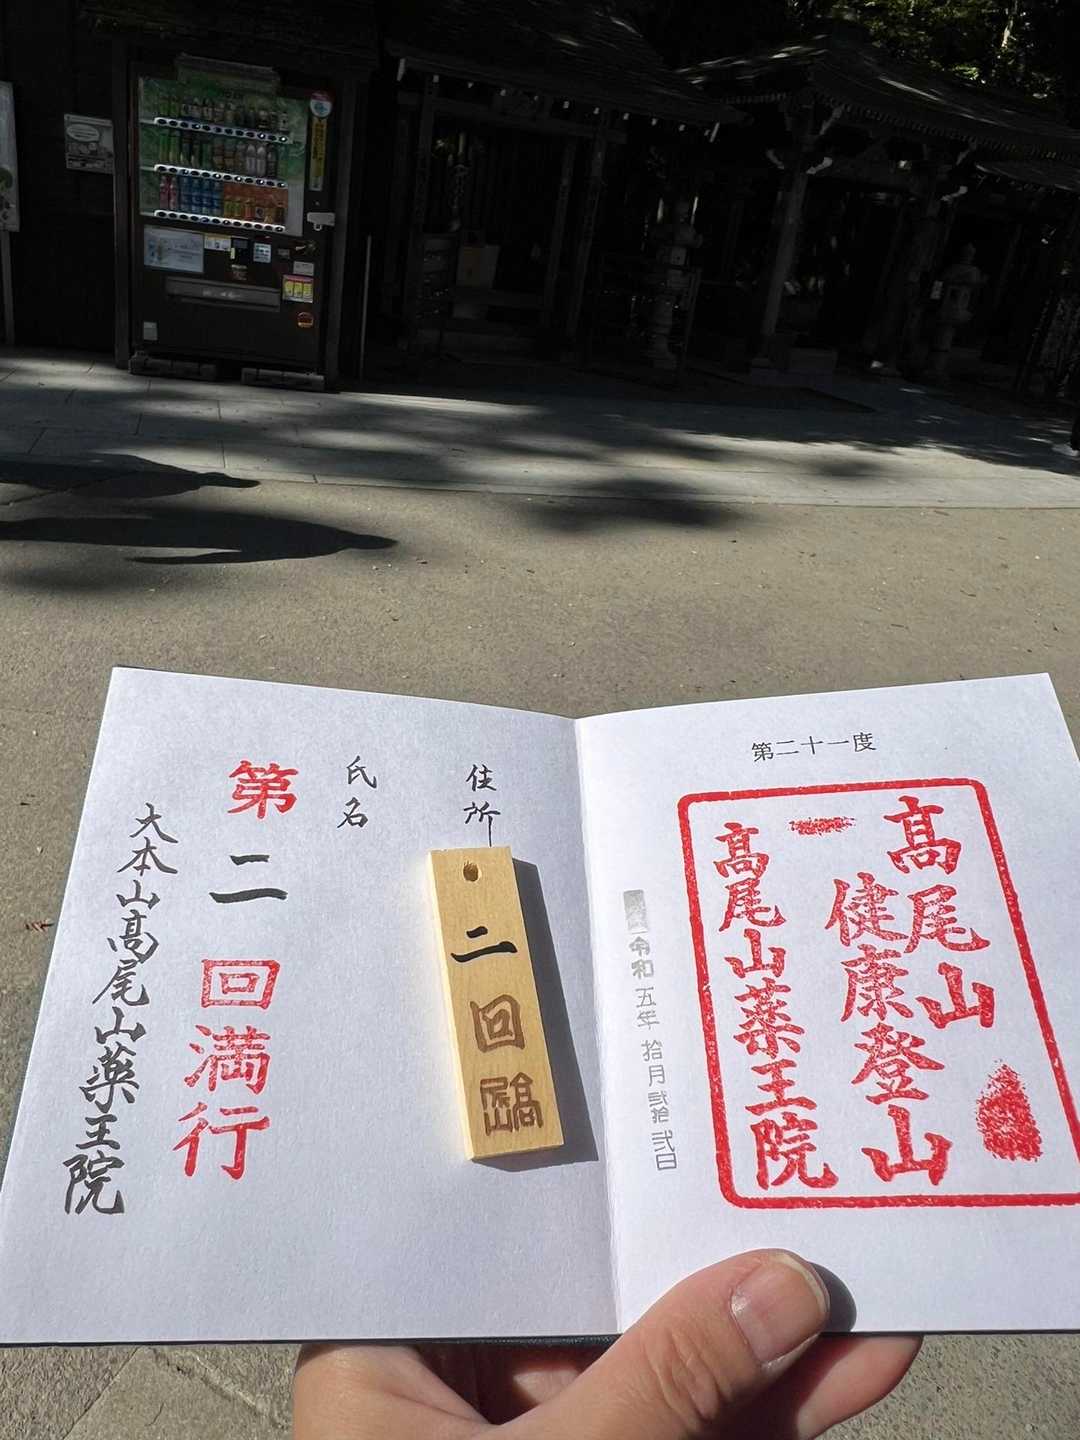 第二十一度
高尾山
健康登山
一
高尾山薬王院
令和五年拾月弐拾弐日
住所
氏名
第二回満行
大本山高尾山薬王院
二回
高尾山